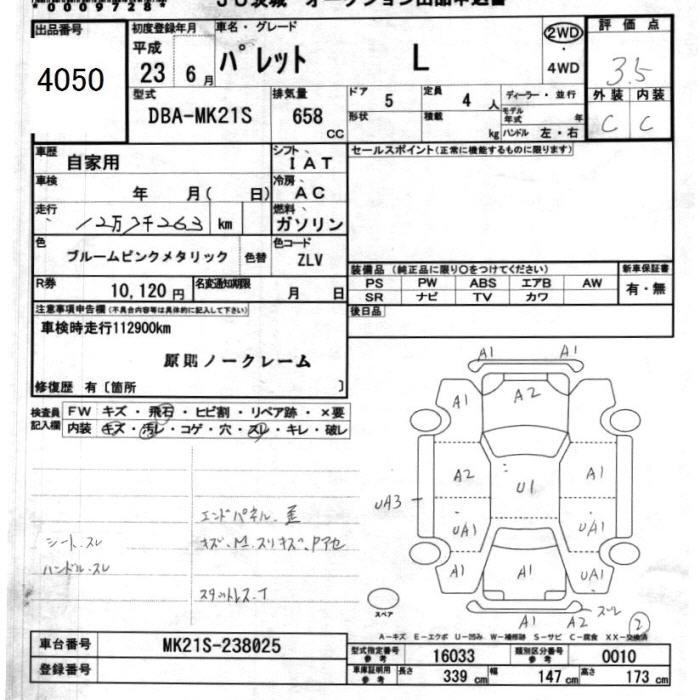 *0097284*
JU茨城 オークション出品申込書
出品番号 4050
初度登録年月 平成 23 年 6月
車名・グレード パレット L
2WD ・ 4WD
評価点 3.5
外装 内装
C C
型式 DBA-MK21S
排気量 658 CC
ドア 5 定員 4 人 ディーラー・並行
形状 積載 kg モデル年式 年
ハンドル 左・右
車歴 自家用
シフト IAT
セールスポイント(正常に機能するものに限ります)
車検 年 月( 日)
冷房 AC
走行 12万7千263 km
燃料 ガソリン
色 ブルームピンクメタリック 色替
色コード ZLV
装備品 (純正品に限り○をつけてください) 新車保証書
PS PW ABS エアB AW 有・無
SR ナビ TV カワ
R券 10,120 円 名変通知期限 月 日
後日品
注意事項申告欄(不具合内容等は具体的に記入して下さい)
車検時走行112900km
原則ノークレーム
修復歴 有〔箇所 〕
検査員記入欄
FW キズ・飛石・ヒビ割・リペア跡・×要
内装 キズ・汚レ・コゲ・穴・スレ・キレ・破レ
A1 A1
A1 A2
A2 A1
UA3 U1
UA1 UA1
A1 A1 UA1
A1 A2 スレ
スペア
②
エンドパネル.歪
シート.スレ キズ、M.スリキズ、Pアセ
ハンドル.スレ
スタットレス.T
A-キズ E-エクボ U-凹み W-補修跡 S-サビ C-腐食 XX-交換済
車台番号 MK21S-238025
型式指定番号 参考 16033 類別区分番号 参考 0010
登録番号
車庫証明用 参考 長さ 339 cm 幅 147 cm 高さ 173 cm